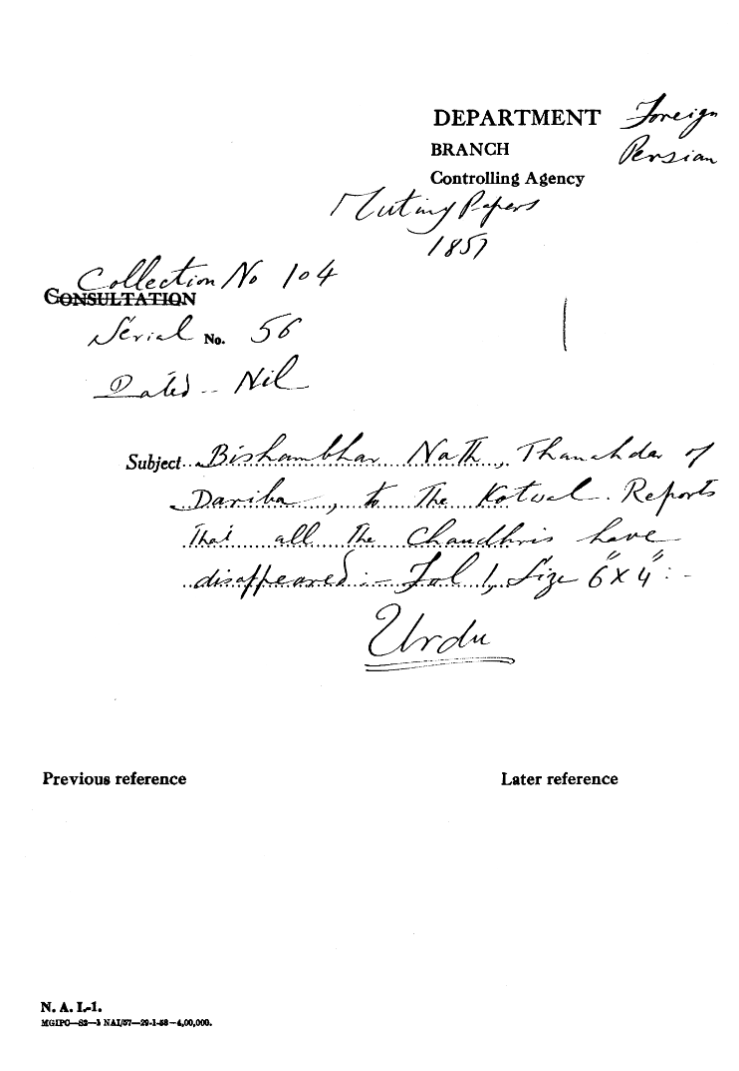 DEPARTMENT Foreign
BRANCH Persian
Controlling Agency
Mutiny Papers
1857
Collection No 104
CONSULTATION
Serial No. 56
Dated - Nil
Subject Bishambhar Nath, Thanahdar of
Dariba, to the Kotwal. Reports
that all the Chaudhris have
disappeared :- Fol 1, Size 6" x 4" : -
Urdu
Previous reference Later reference
N. A. I.-1.
MGIPC—S2—3 NAI/57—29-1-58—4,00,000.